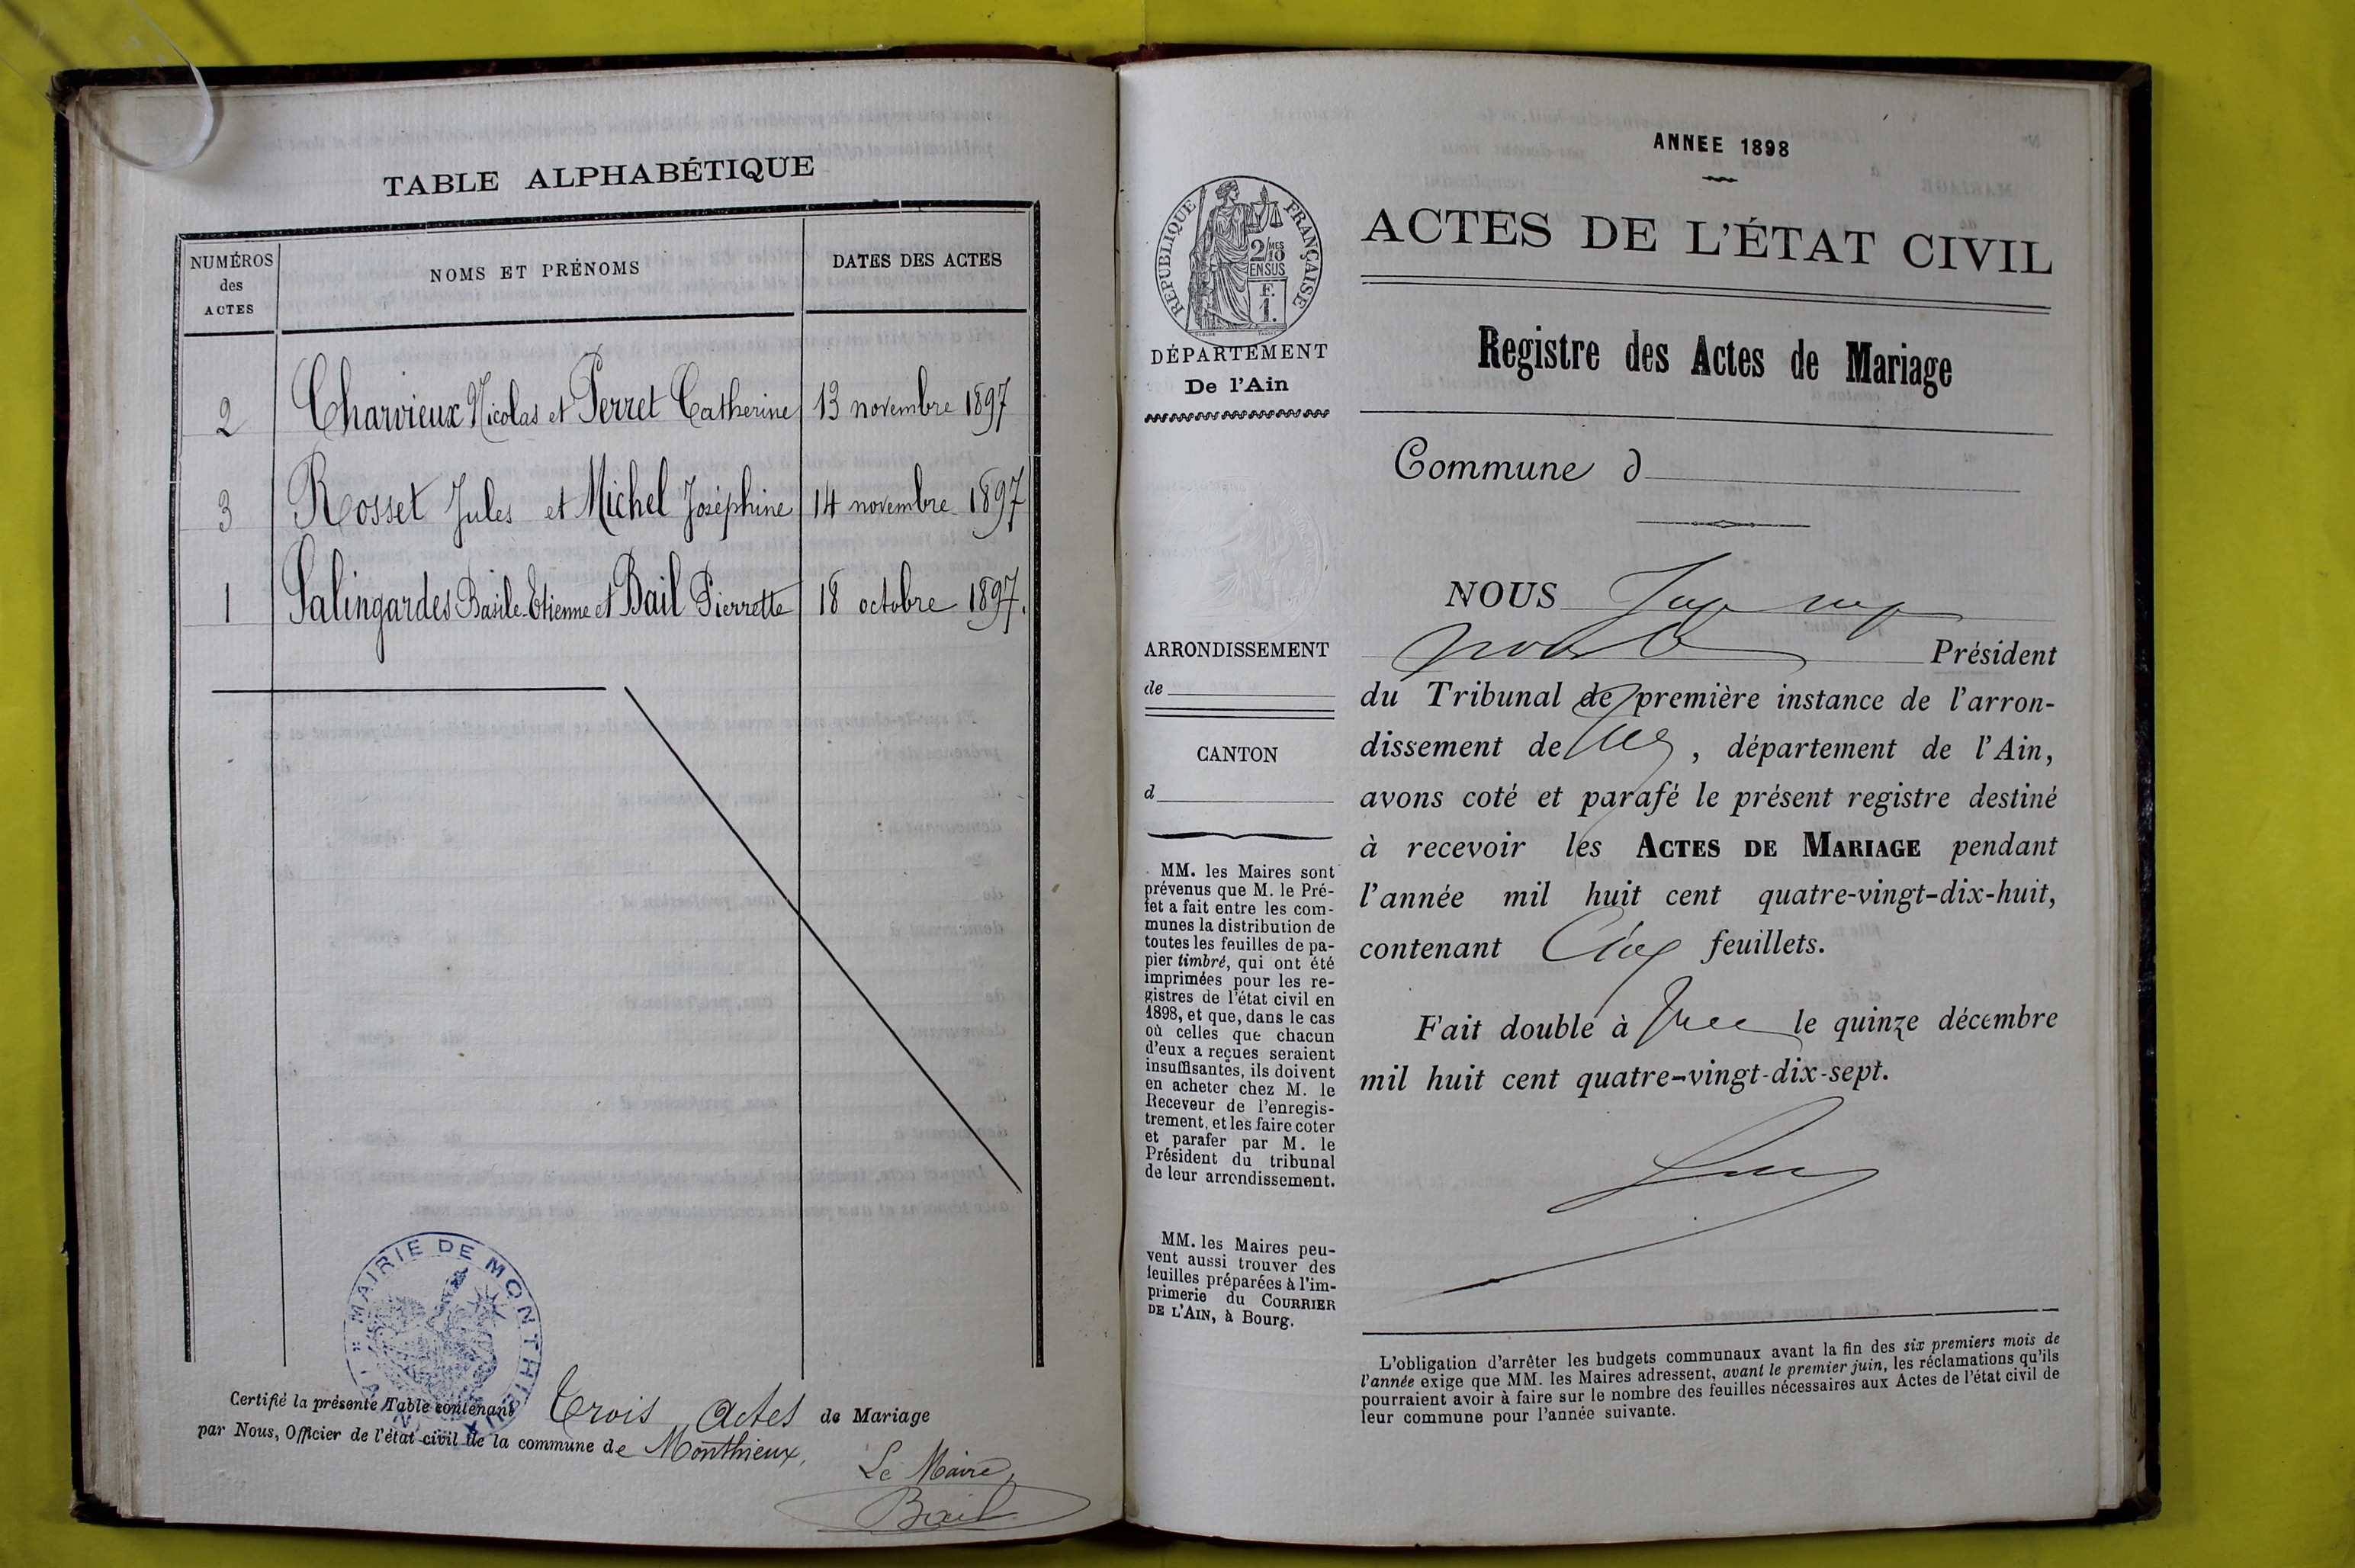 TABLE ALPHABÉTIQUE
NUMÉROS
des
ACTES
NOMS ET PRÉNOMS
DATES DES ACTES
2 Charvieux Nicolas et Perret Catherine 13 novembre 1897
3 Rosset Jules et Michel Joséphine 14 novembre 1897
1 Salingardes Basile-Etienne et Bail Pierrette 18 octobre 1897.
MAIRIE DE MONTHIEUX
Certifié la présente Table contenant Trois Actes de Mariage
par Nous, Officier de l'état civil de la commune de Monthieux,
Le Maire,
Bail
RÉPUBLIQUE FRANÇAISE
2/MES
10
EN SUS
F.
1.
DÉPARTEMENT
De l'Ain
ARRONDISSEMENT
de
CANTON
d
MM. les Maires sont
prévenus que M. le Pré-
fet a fait entre les com-
munes la distribution de
toutes les feuilles de pa-
pier timbré, qui ont été
imprimées pour les re-
gistres de l'état civil en
1898, et que, dans le cas
où celles que chacun
d'eux a reçues seraient
insuffisantes, ils doivent
en acheter chez M. le
Receveur de l'enregis-
trement, et les faire coter
et parafer par M. le
Président du tribunal
de leur arrondissement.
MM. les Maires peu-
vent aussi trouver des
feuilles préparées à l'im-
primerie du COURRIER
DE L'AIN, à Bourg.
ANNEE 1898
ACTES DE L'ÉTAT CIVIL
Registre des Actes de Mariage
Commune d
NOUS
Président
du Tribunal de première instance de l'arron-
dissement de , département de l'Ain,
avons coté et parafé le présent registre destiné
à recevoir les ACTES DE MARIAGE pendant
l'année mil huit cent quatre-vingt-dix-huit,
contenant Cinq feuillets.
Fait double à le quinze décembre
mil huit cent quatre-vingt-dix-sept.
L'obligation d'arrêter les budgets communaux avant la fin des six premiers mois de
l'année exige que MM. les Maires adressent, avant le premier juin, les réclamations qu'ils
pourraient avoir à faire sur le nombre des feuilles nécessaires aux Actes de l'état civil de
leur commune pour l'année suivante.